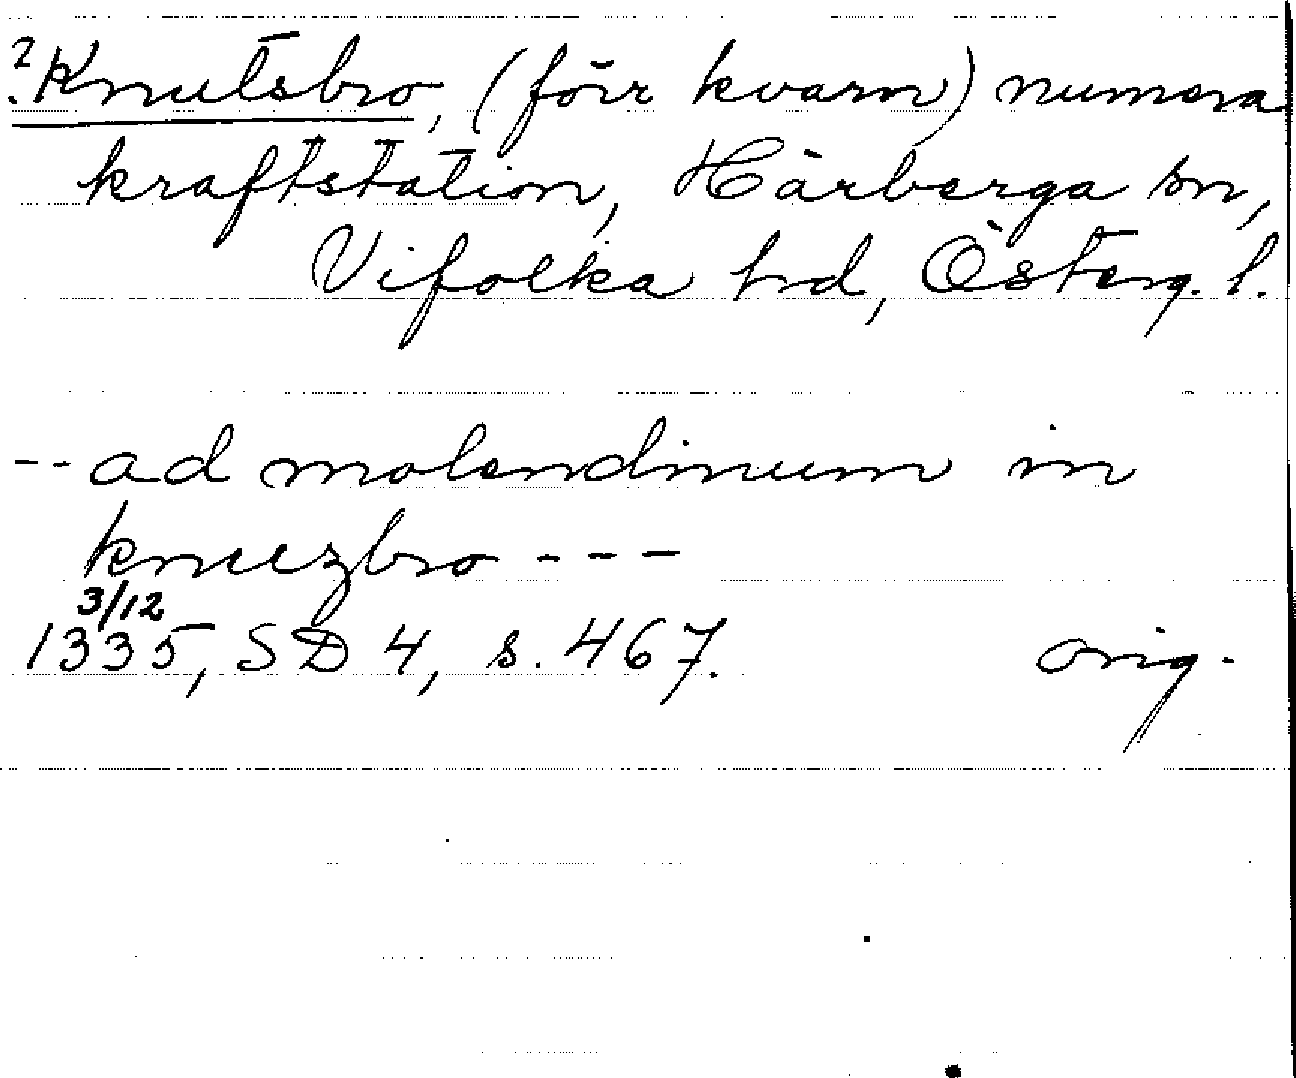 ?Knutsbro, (förr kvarn) numera
kraftstation, Härberga sn,
Vifolka hd, Österg. l.
-- ad molendinum in
knuzbro ---
3/12
1335, SD 4, s. 467. orig.